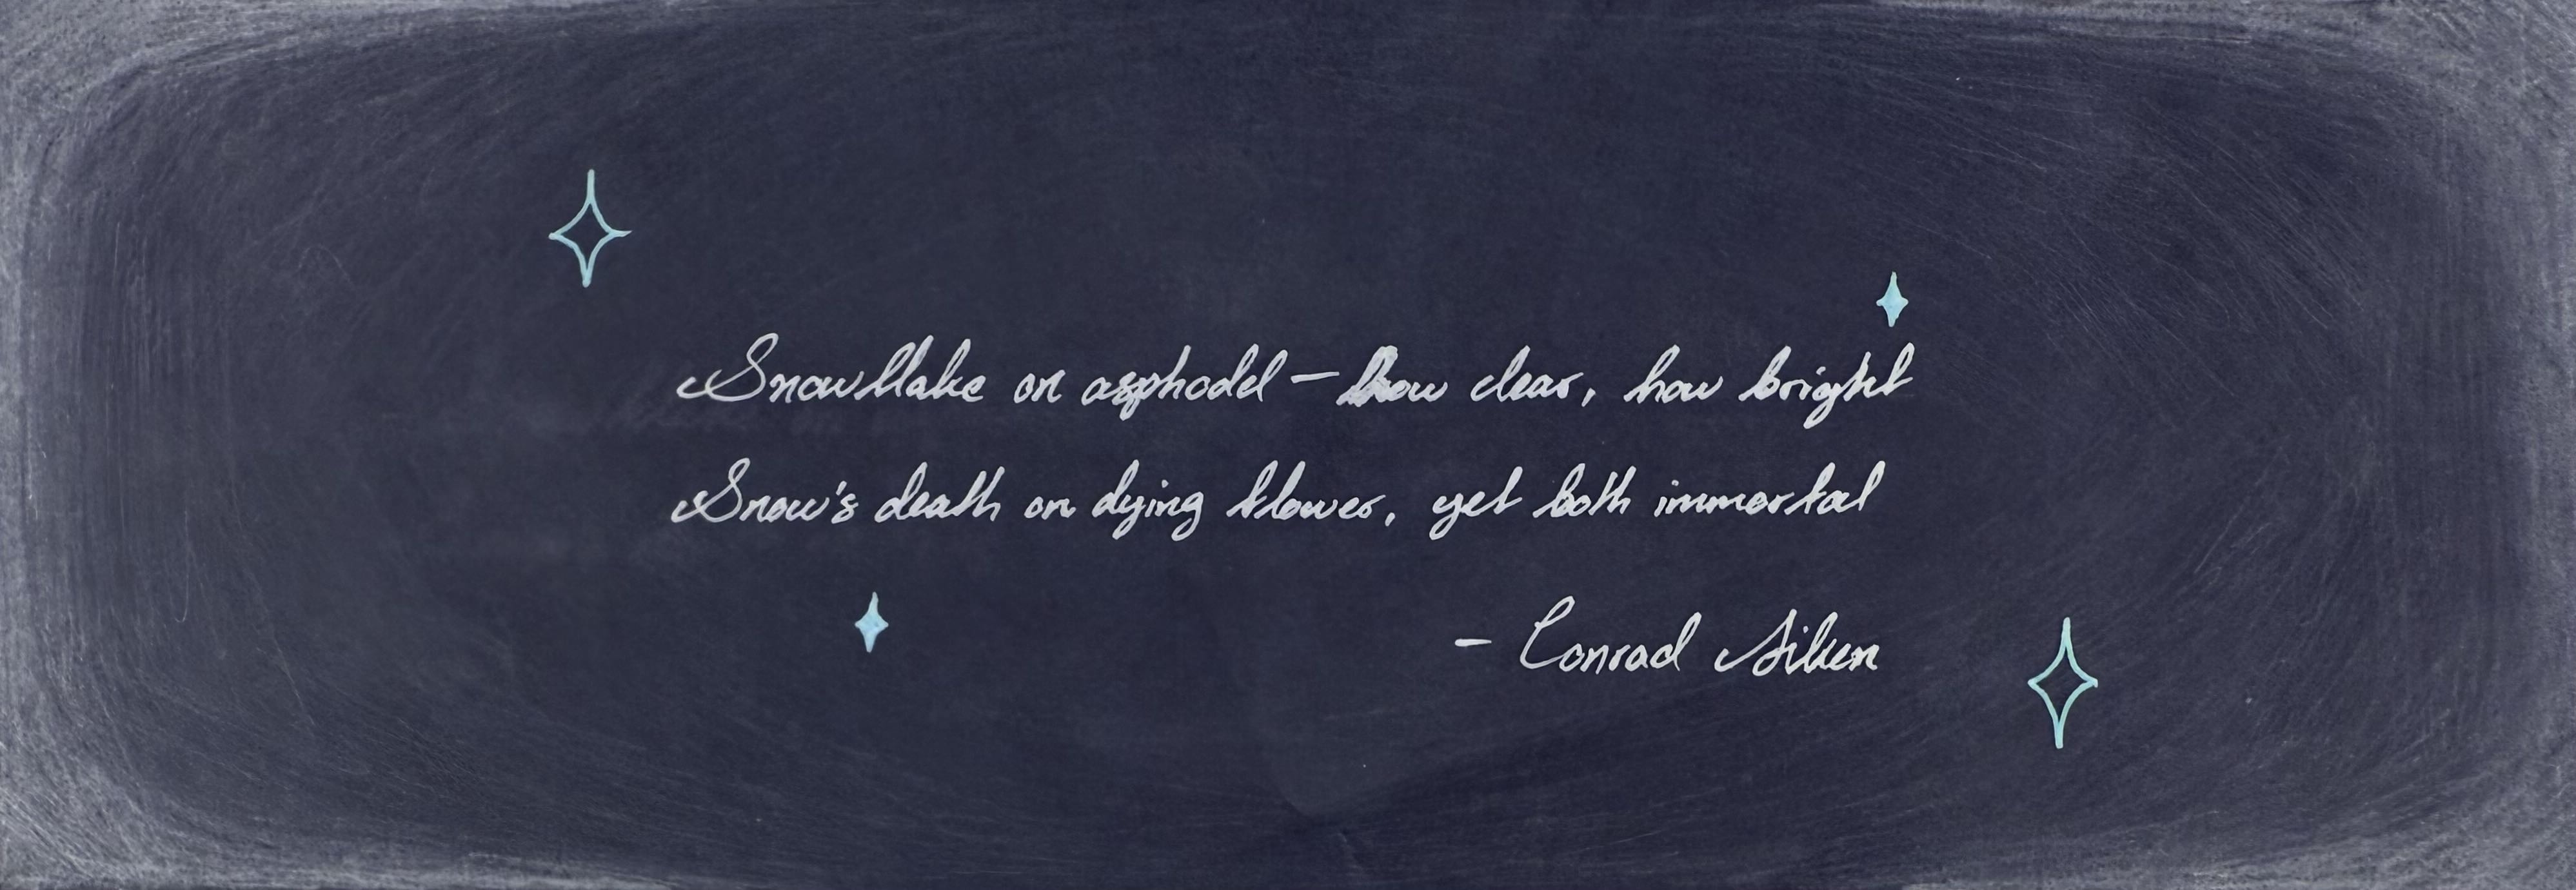 Snowflake on asphodel – how clear, how bright
Snow's death on dying flower, yet both immortal
– Conrad Aiken